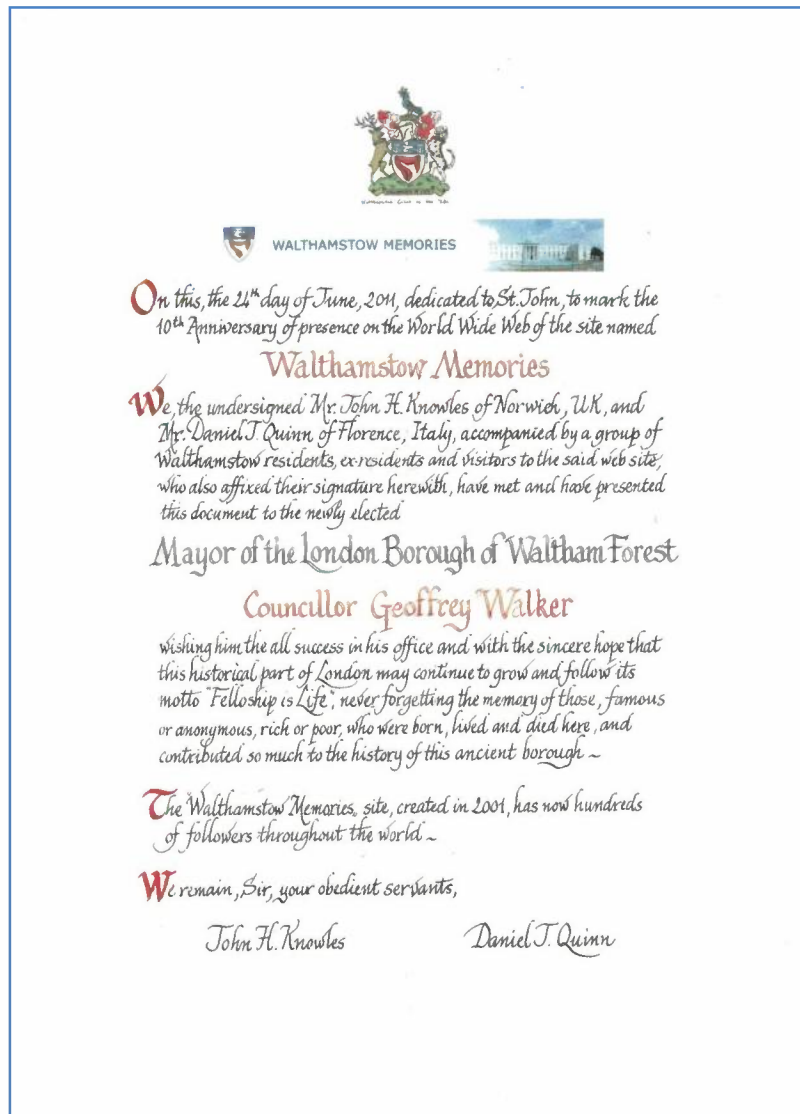 WALTHAMSTOW MEMORIES
On this, the 24th day of June, 2011, dedicated to St. John, to mark the
10th Anniversary of presence on the World Wide Web of the site named
Walthamstow Memories
We, the undersigned Mr. John H. Knowles of Norwich, UK, and
Mr. Daniel J. Quinn of Florence, Italy, accompanied by a group of
Walthamstow residents, ex-residents and visitors to the said web site,
who also affixed their signature herewith, have met and have presented
this document to the newly elected
Mayor of the London Borough of Waltham Forest
Councillor Geoffrey Walker
wishing him the all success in his office and with the sincere hope that
this historical part of London may continue to grow and follow its
motto "Felloship is Life", never forgetting the memory of those, famous
or anonymous, rich or poor, who were born, lived and died here, and
contributed so much to the history of this ancient borough ~
The Walthamstow Memories, site, created in 2001, has now hundreds
of followers throughout the world ~
We remain, Sir, your obedient servants,
John H. Knowles Daniel J. Quinn